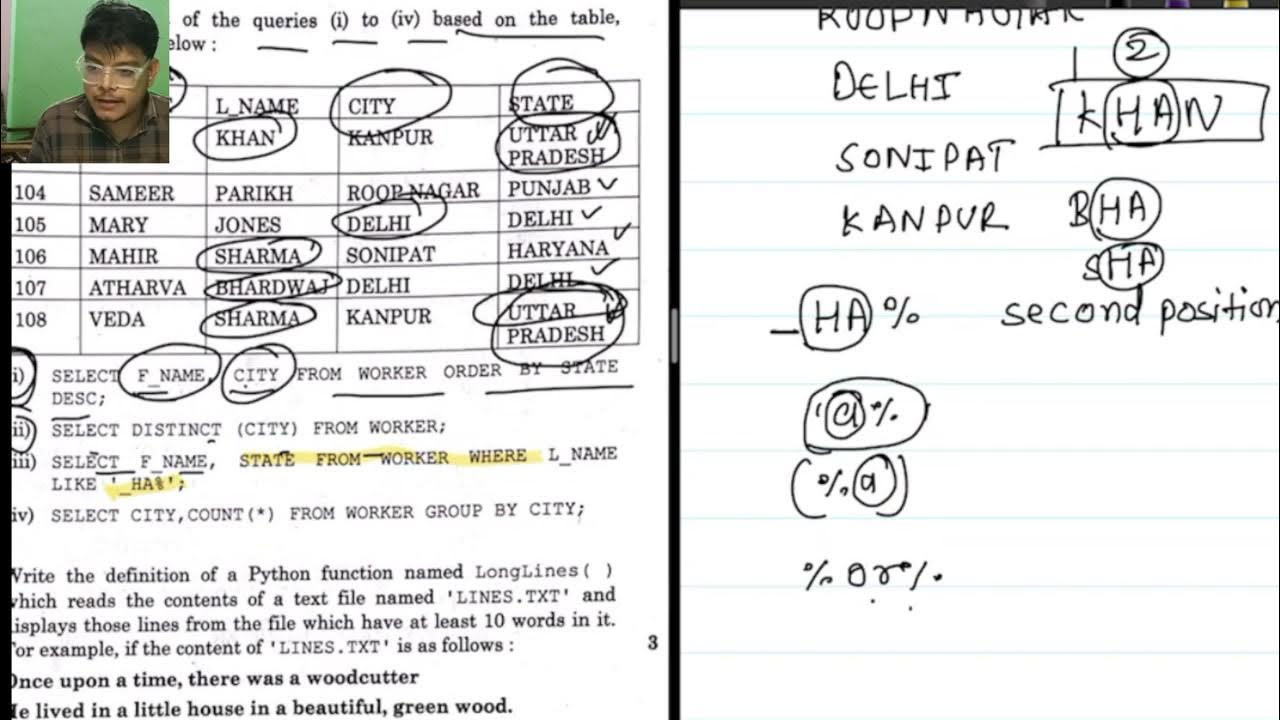 of the queries (i) to (iv) based on the table,
elow :
L_NAME CITY STATE
KHAN KANPUR UTTAR PRADESH
104 SAMEER PARIKH ROOP NAGAR PUNJAB
105 MARY JONES DELHI DELHI
106 MAHIR SHARMA SONIPAT HARYANA
107 ATHARVA BHARDWAJ DELHI DELHI
108 VEDA SHARMA KANPUR UTTAR PRADESH
i) SELECT F_NAME, CITY FROM WORKER ORDER BY STATE
DESC;
ii) SELECT DISTINCT (CITY) FROM WORKER;
iii) SELECT F_NAME, STATE FROM WORKER WHERE L_NAME
LIKE '_HA%';
iv) SELECT CITY,COUNT(*) FROM WORKER GROUP BY CITY;
Write the definition of a Python function named LongLines( )
which reads the contents of a text file named 'LINES.TXT' and
displays those lines from the file which have at least 10 words in it.
For example, if the content of 'LINES.TXT' is as follows : 3
Once upon a time, there was a woodcutter
He lived in a little house in a beautiful, green wood.
DELHI
2
KHAN
SONIPAT
KANPUR BHA
SHA
_HA% second position
'a%
(%a)
%or%